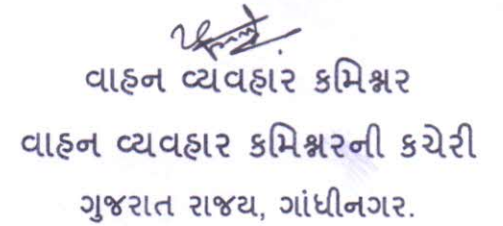 વાહન વ્યવહાર કમિશ્નર
વાહન વ્યવહાર કમિશ્નરની કચેરી
ગુજરાત રાજય, ગાંધીનગર.